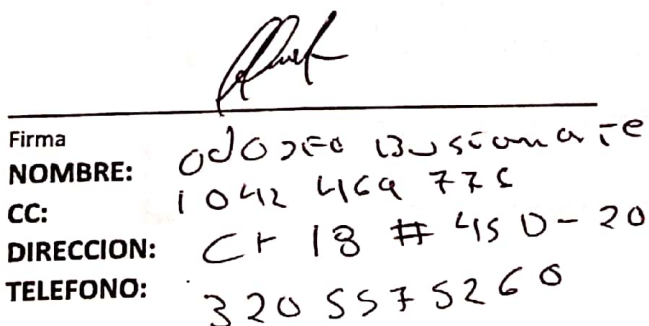 Firma
NOMBRE: Bustamate
CC: 1042 469 775
DIRECCION: Cr 18 # 45 D - 20
TELEFONO: 320 5575260